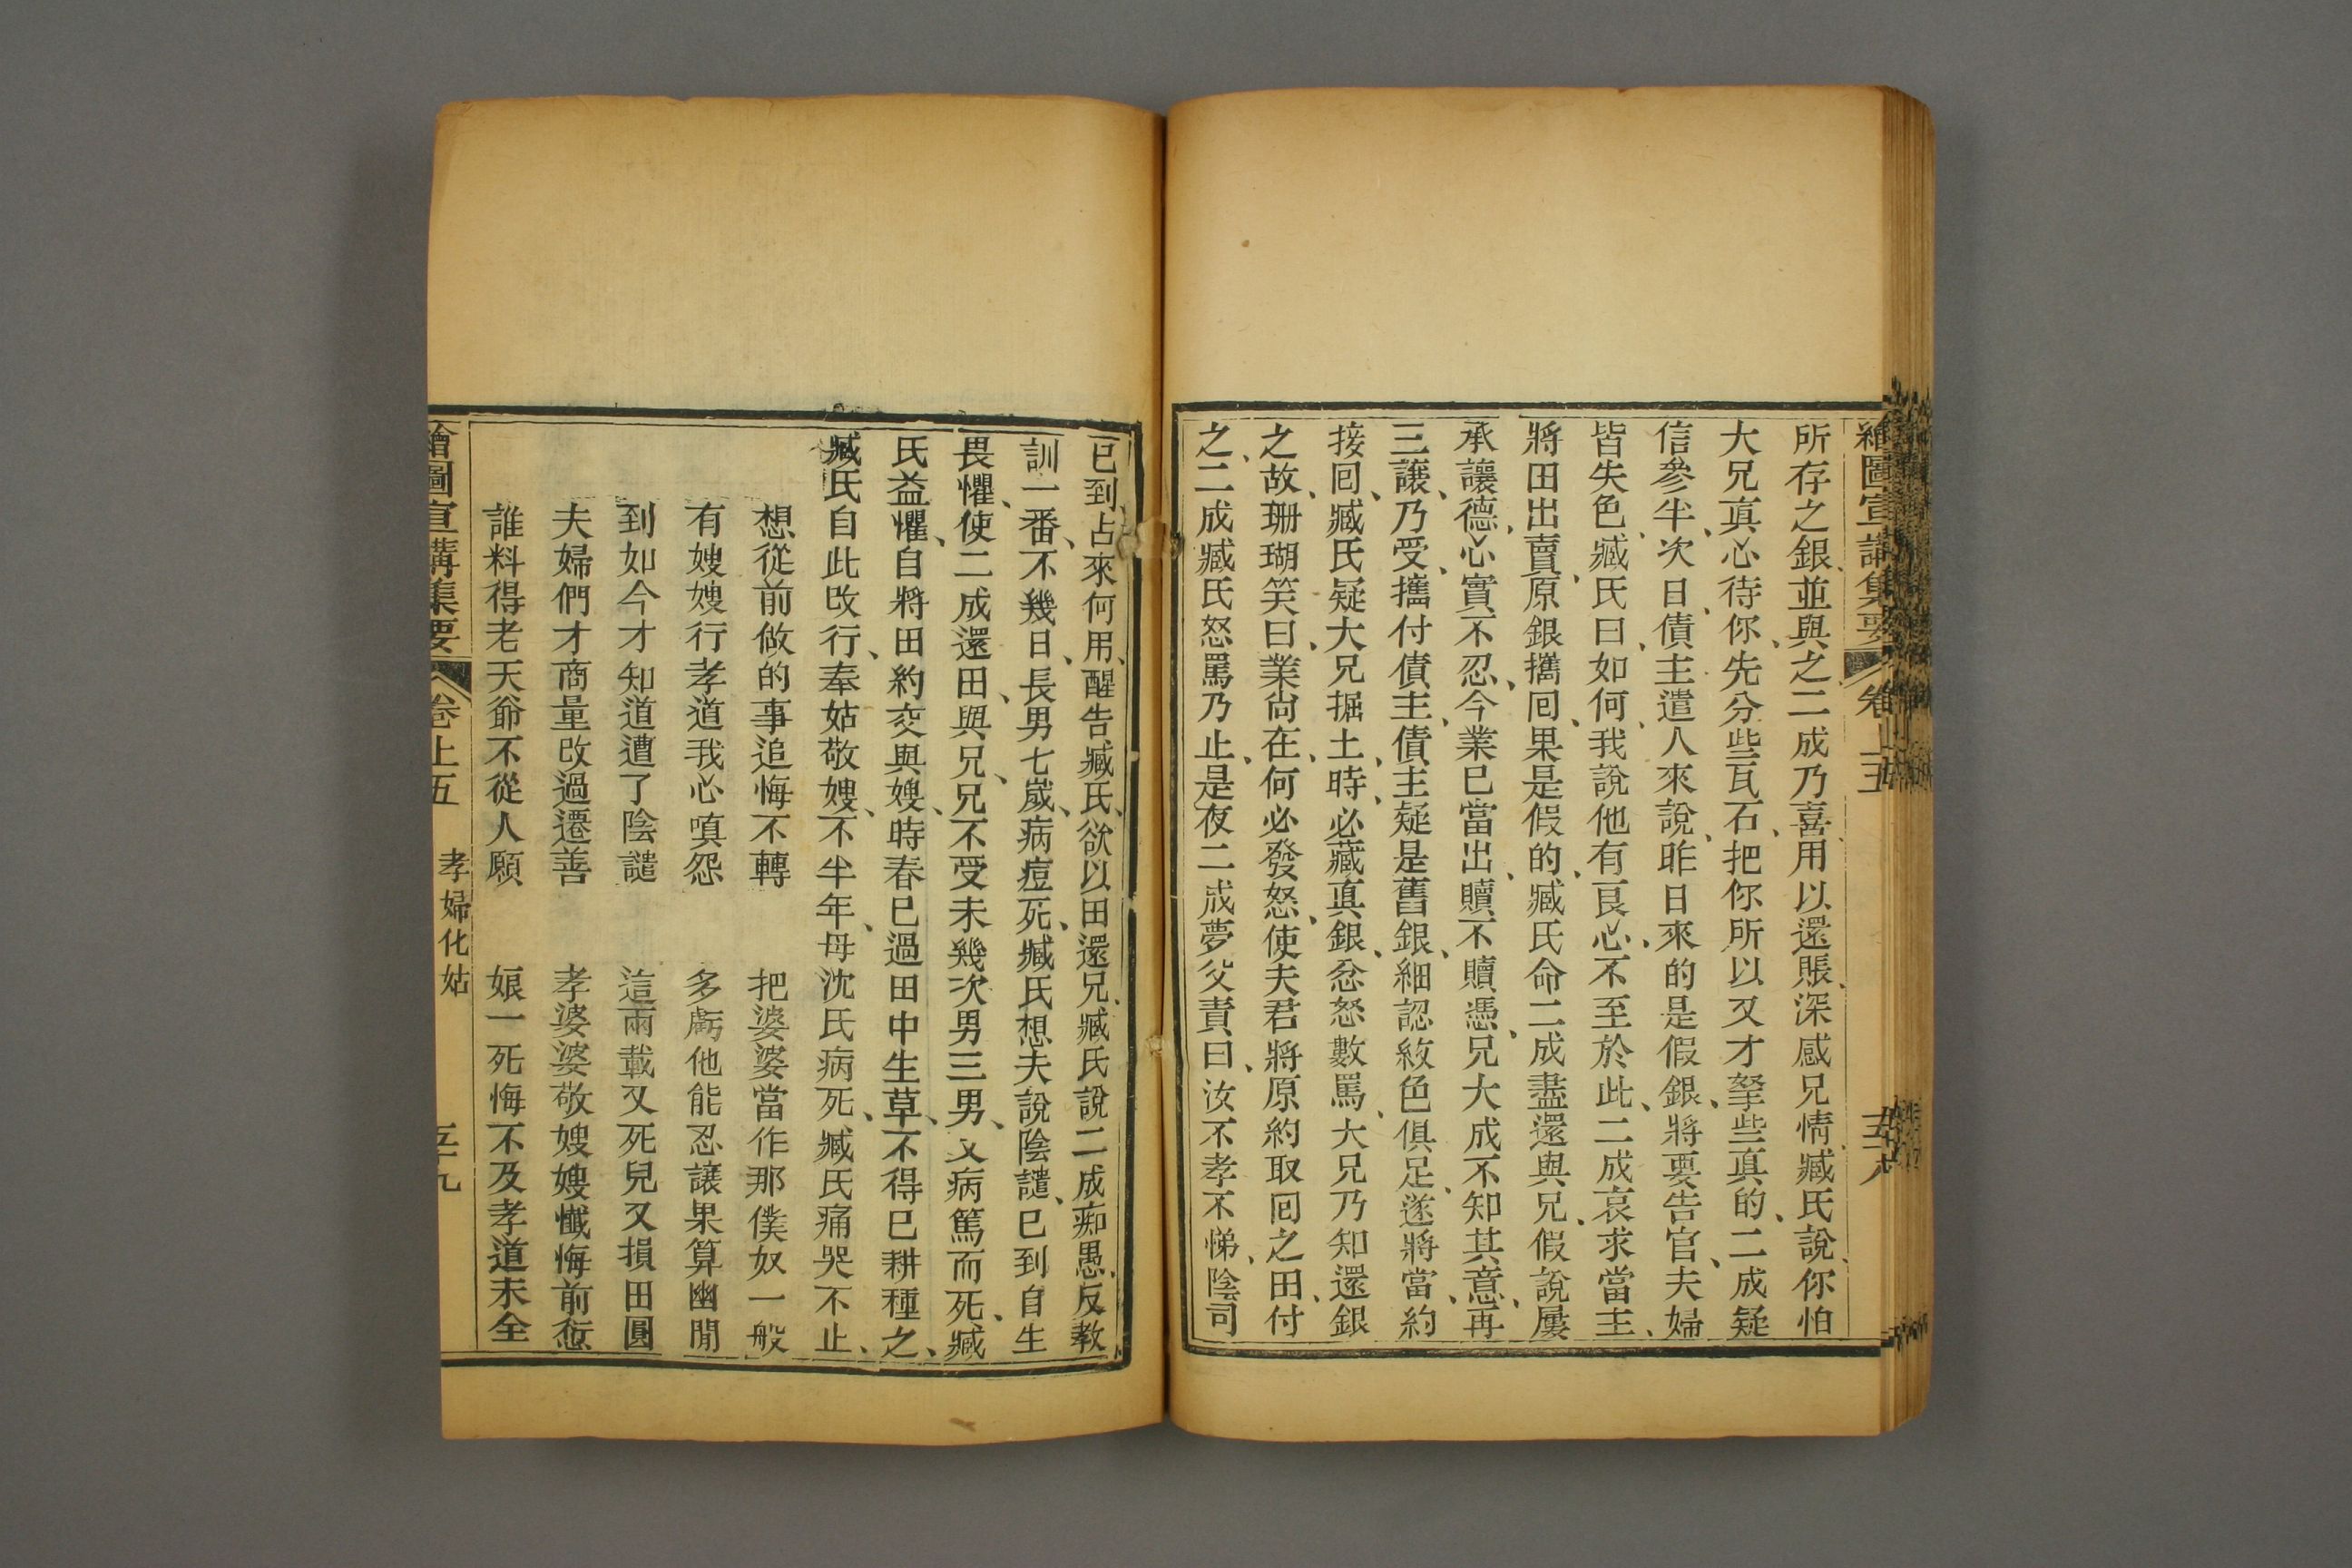 繪圖宣講集要 卷上五 五十八
所存之銀、並與之、二成乃喜、用以還賬、深感兄情、臧氏說、你怕
大兄真心待你、先分些瓦石、把你所以又才拏些真的、二成疑
信參半、次日、債主遣人來說、昨日來的是假銀、將要告官、夫婦
皆失色、臧氏曰、如何、我說他有良心、不至於此、二成哀求當主、
將田出賣、原銀攜回、果是假的、臧氏命二成盡還與兄、假說屢
承讓德、心實不忍、今業已當出、贖不贖憑兄、大成不知其意、再
三讓、乃受、攜付債主、債主疑是舊銀、細認紋色俱足、遂將當約
接回、臧氏疑大兄掘土時、必藏真銀、忿怒數罵、大兄乃知還銀
之故、珊瑚笑曰、業尚在、何必發怒、使夫君將原約取回之田、付
之、二成臧氏怒罵乃止、是夜二成夢父責曰、汝不孝不悌、陰司
已到、占來何用、醒告臧氏、欲以田還兄、臧氏說二成痴愚、反教
訓一番、不幾日、長男七歲、病痘死、臧氏想夫說陰譴、已到自生
畏懼、使二成還田、與兄、兄不受、未幾次男三男、又病篤而死、臧
氏益懼、自將田約交與嫂、時春已過田中生草、不得已耕種之、
臧氏自此改行、奉姑敬嫂、不半年、母沈氏病死、臧氏痛哭不止、
想從前做的事追悔不轉 把婆婆當作那僕奴一般
有嫂嫂行孝道我心嗔怨 多虧他能忍讓果算幽閒
到如今才知道遭了陰譴 這兩載又死兒又損田園
夫婦們才商量改過遷善 孝婆婆敬嫂嫂懺悔前愆
誰料得老天爺不從人願 娘一死悔不及孝道未全
繪圖宣講集要 卷上五 孝婦化姑 五十九